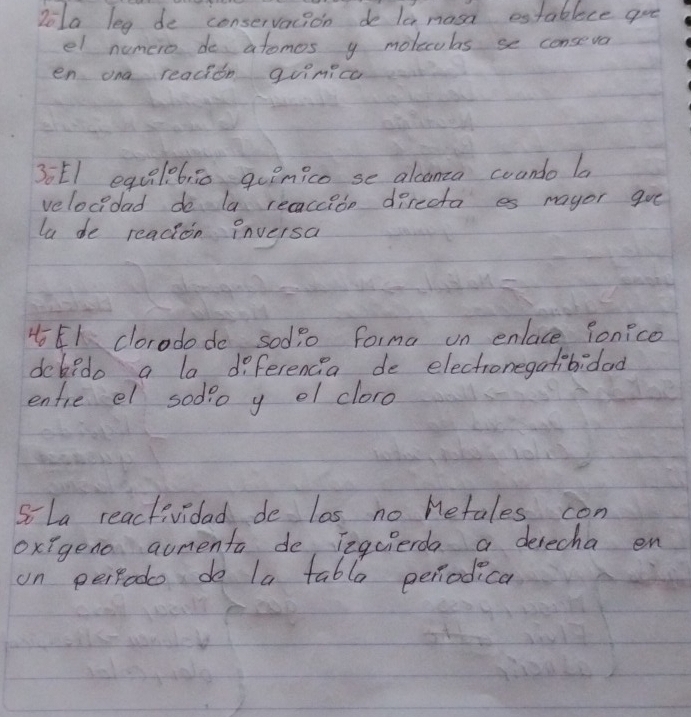 2- La leg de conservación de la masa establece que
el numero de atomos y moleculas se conseva
en una reación quimica
3- El equilibrio quimico se alcanza cuando la
velocidad de la reacción directa es mayor que
la de reación inversa
4- El clorodo de sodio forma un enlace ionico
debido a la diferencia de electronegatibidad
entre el sodio y el cloro
5- La reactividad de los no Metales con
oxigeno aumenta de izquierda a derecha en
un periodo de la tabla periodica